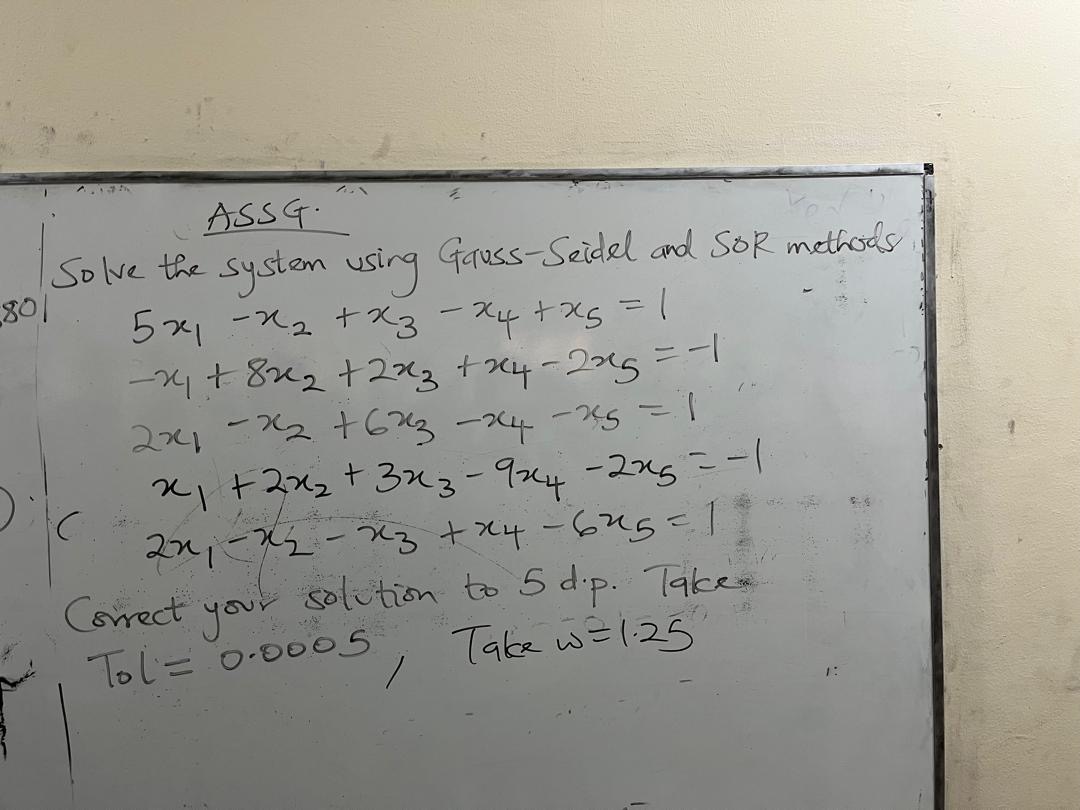 ASSG.
Solve the system using Gauss-Seidel and SOR methods
801
5x₁ - x₂ + x₃ - x₄ + x₅ = 1
-x₁ + 8x₂ + 2x₃ + x₄ - 2x₅ = -1
2x₁ - x₂ + 6x₃ - x₄ - x₅ = 1
x₁ + 2x₂ + 3x₃ - 9x₄ - 2x₅ = -1
2x₁ - x₂ - x₃ + x₄ - 6x₅ = 1
Correct your solution to 5 d.p. Take
Tol = 0.0005, Take w=1.25